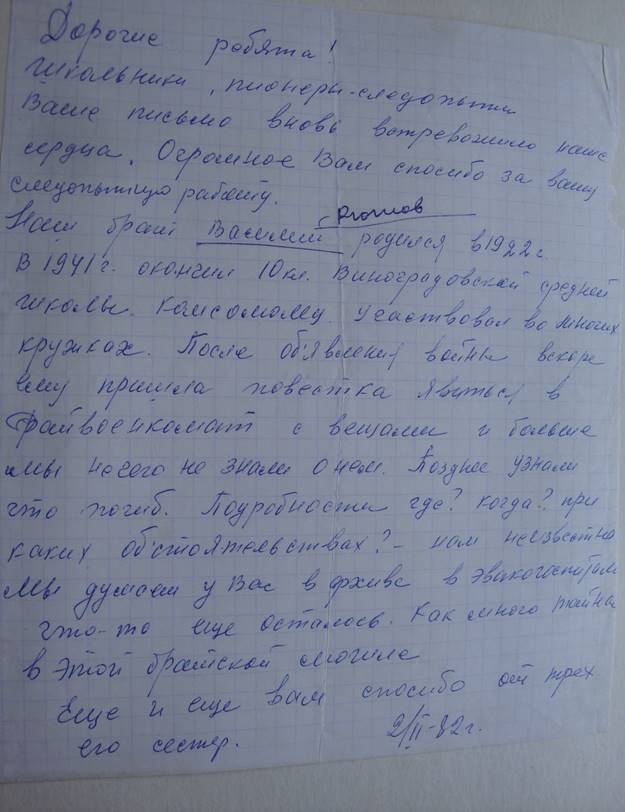 Дорогие ребята!
Школьники, пионеры-следопыты
Ваше письмо вновь встревожило наше
сердца. Огромное Вам спосибо за вашу
следопытскую работу.
Наш брат Василий родился в 1922 г.
В 1941 г. окончил 10 кл. Виноградовской средней
школы. Комсомолец. Участвовал во многих
кружках. После об'явления войны вскоре
ему пришла повестка явиться в
Райвоенкомат с вещами и больше
мы ничего не знали о нем. Позднее узнали
что погиб. Подробности где? когда? при
каких об'стоятельствах? - нам неизвестно
Мы думаем у Вас в архиве в эвакогоспитале
что-то еще осталось. Как много тайны
в этой братской могиле
Еще и еще вам спосибо от трех
его сестер. 2/II-82 г.